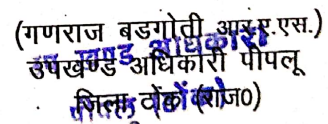 (गणराज बडगोती आर.ए.एस.)
उपखण्ड अधिकारी पीपलू
जिला टोंक (राज0)